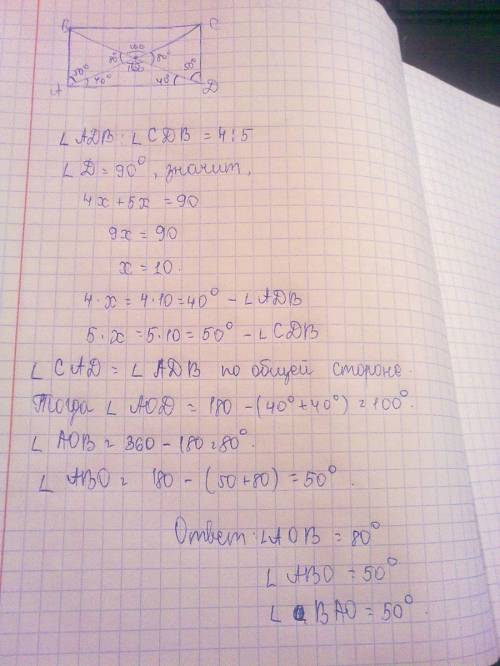 B C
100
80° 80°
100
50° 50°
40° 40°
A D
∠ADB : ∠CDB = 4:5
∠D = 90°, значит,
4x + 5x = 90
9x = 90
x = 10.
4·x = 4·10 = 40° - ∠ADB
5·x = 5·10 = 50° - ∠CDB
∠CAD = ∠ADB по общей стороне.
Тогда ∠AOD = 180 - (40° + 40°) = 100°.
∠AOB = 360 - 180 = 80°.
∠ABO = 180 - (50 + 80) = 50°.
Ответ: ∠AOB = 80°
∠ABO = 50°
∠BAO = 50°.